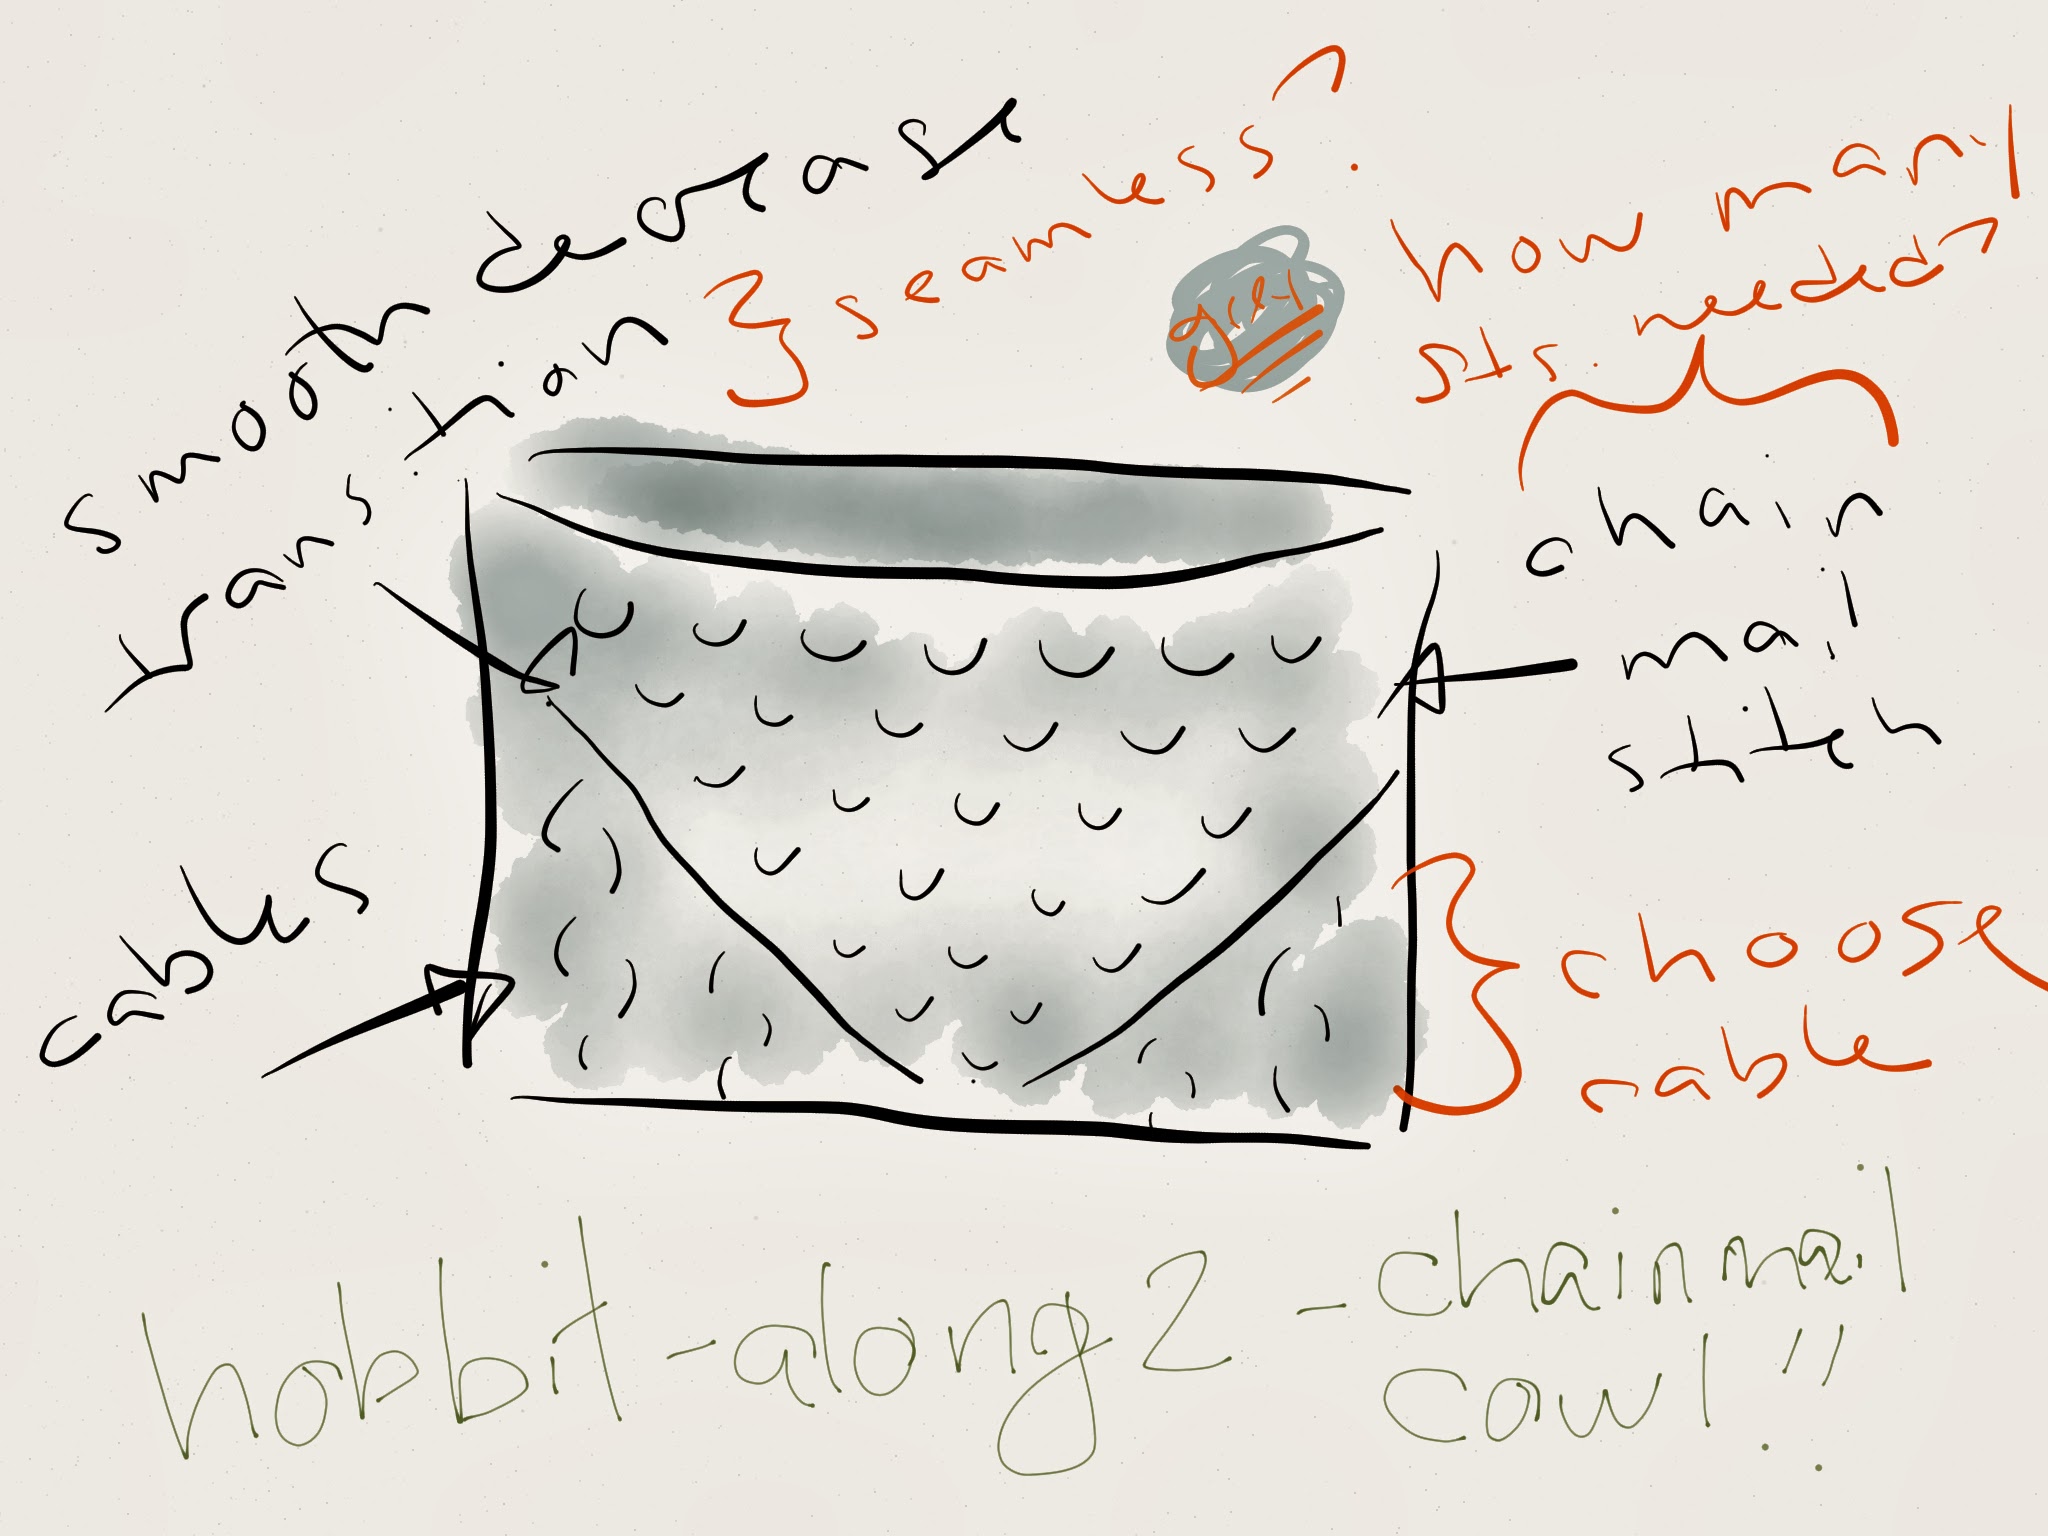 smooth decrease
transition
} seamless?
grey
how many
sts. needed?
chain
mail
stitch
cables
} choose
cable
hobbit-along 2 - chainmail
cowl!!